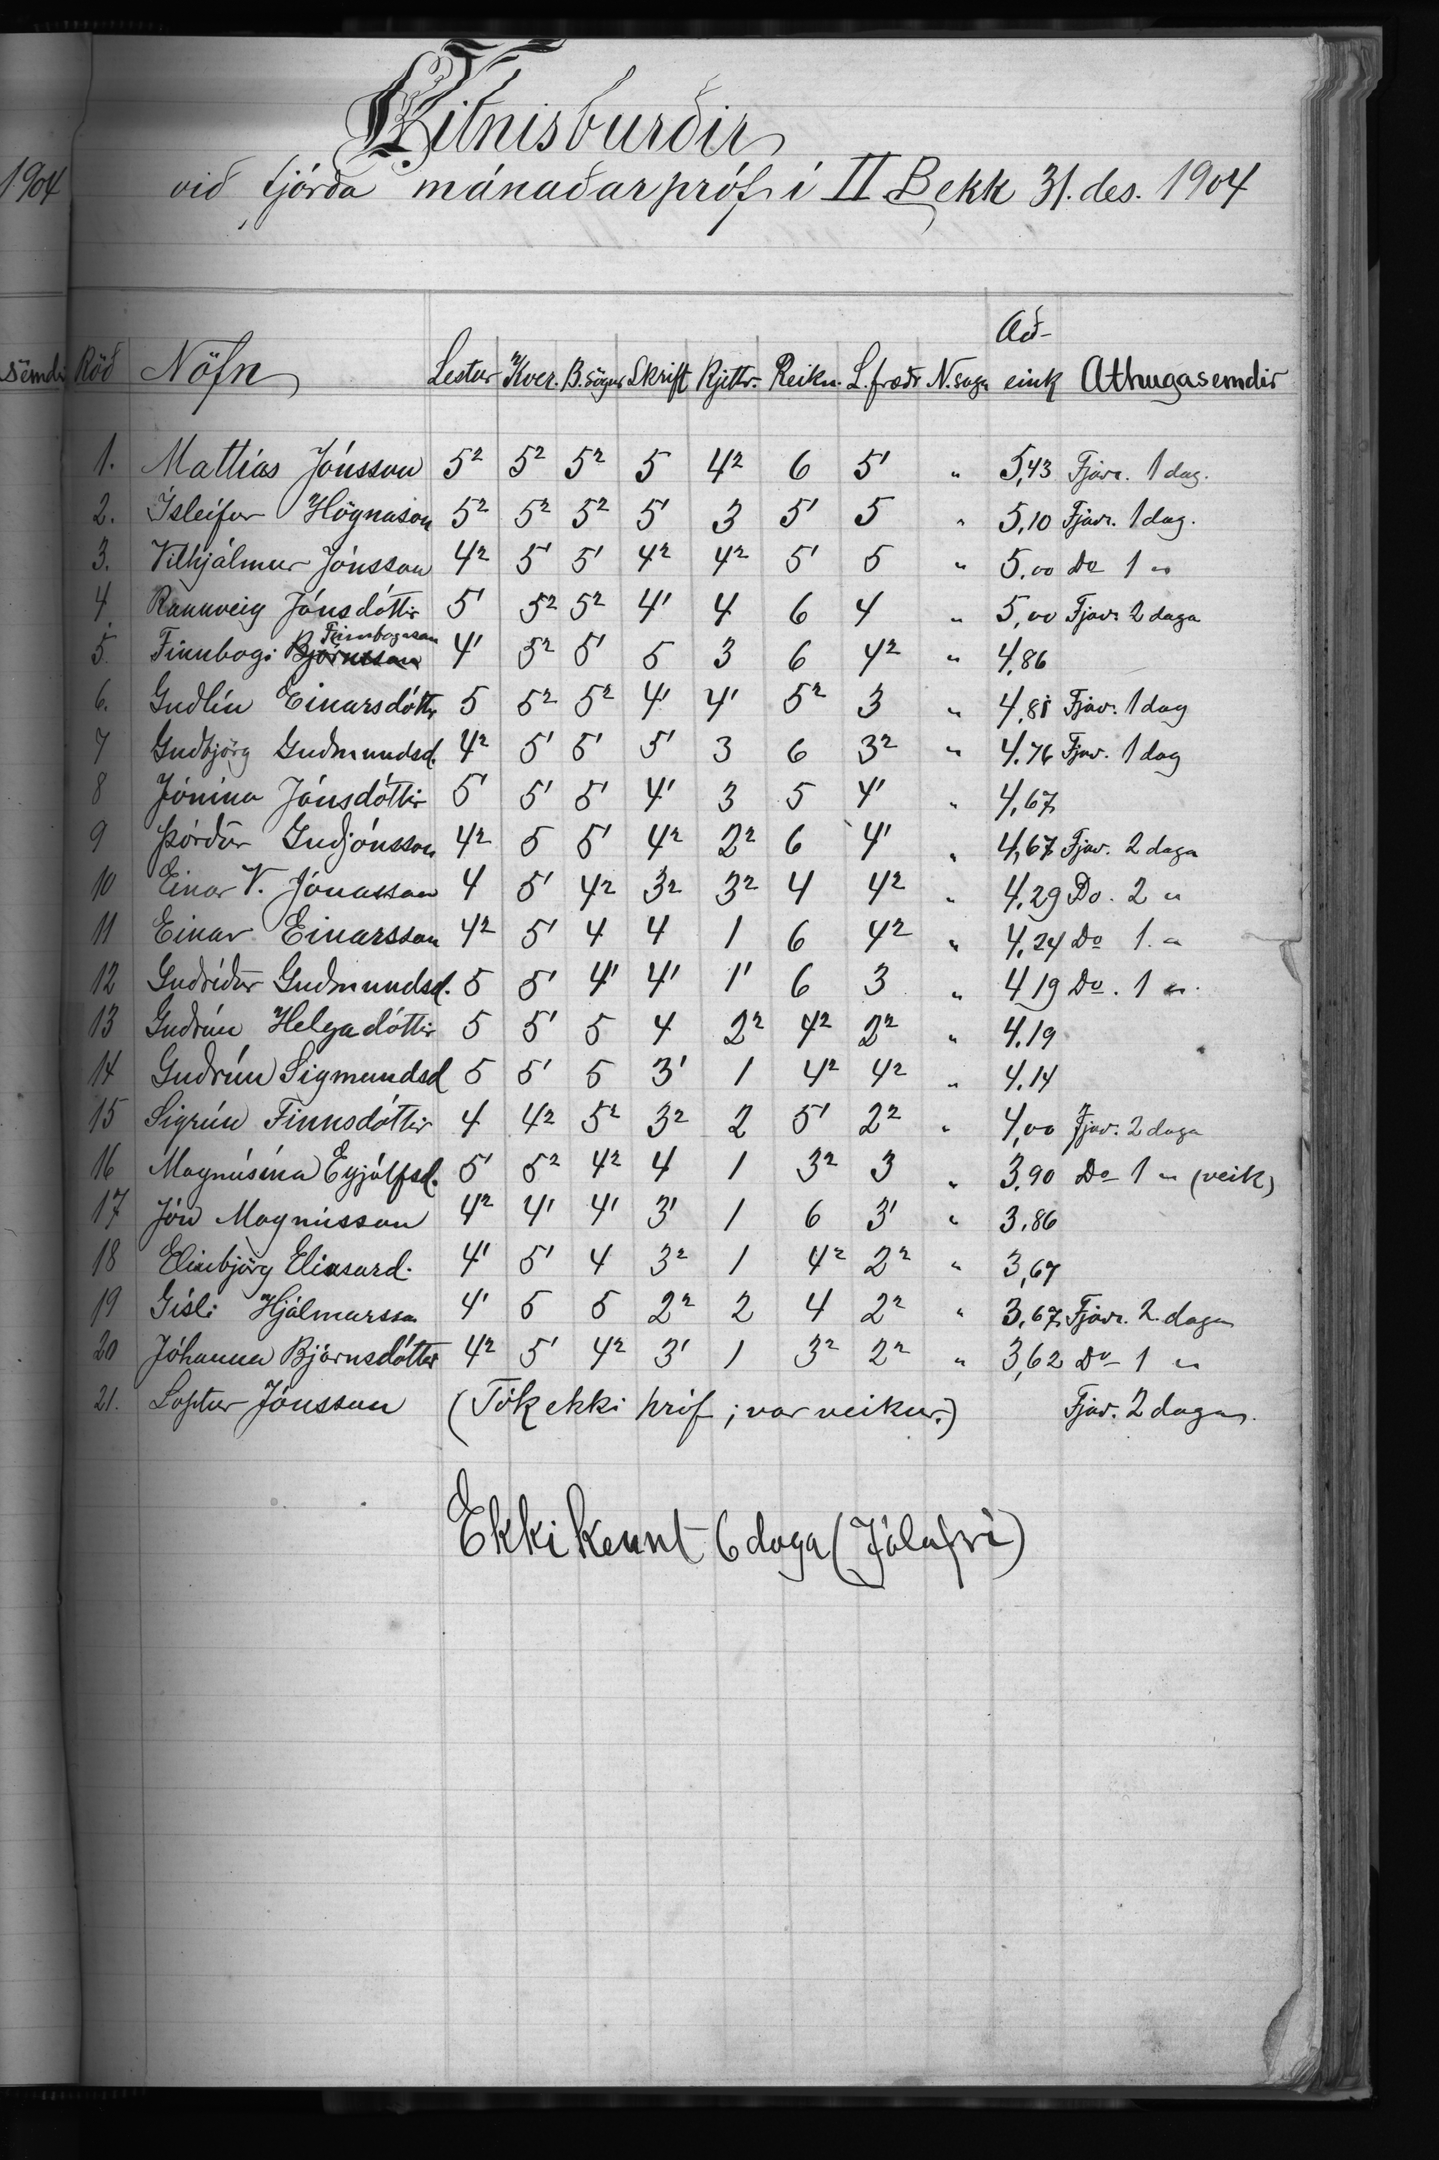 Vitnisburðir
við fjórða mánaðarpróf í II. Bekk 31. des. 1904
1904
Að-
Röð Nöfn Lestur Kver. B.sögur Skrift Rjettr. Reikn. L.fræði N.saga eink Athugasemdir
1. Mattías Jónsson 5² 5² 5² 5 4² 6 5¹ " 5,43 Fjarv. 1 dag.
2. Ísleifur Högnason 5² 5² 5² 5¹ 3 5¹ 5 " 5,10 Fjarv. 1 dag.
3. Vilhjálmur Jónsson 4² 5¹ 5¹ 4² 4² 5¹ 5 " 5,00 Do 1 "
4. Rannveig Jónsdóttir 5¹ 5² 5² 4¹ 4 6 4 " 5,00 Fjarv. 2 daga
Finnbogason
5. Finnbogi Björnsson 4¹ 5² 5¹ 5 3 6 4² " 4,86
6. Guðlín Einarsdóttir 5 5² 5² 4¹ 4¹ 5² 3 " 4,81 Fjav. 1 dag
7 Guðbjörg Guðmundsd. 4² 5¹ 5¹ 5¹ 3 6 3² " 4.76 Fjav. 1 dag
8 Jónína Jónsdóttir 5¹ 5¹ 5¹ 4¹ 3 5 4¹ " 4,67
9 Þórður Guðjónsson 4² 5 5¹ 4² 2² 6 4¹ " 4,67 Fjav. 2 daga
10 Einar V. Jónasson 4 5¹ 4² 3² 3² 4 4² " 4.29 Do. 2 "
11 Einar Einarsson 4² 5¹ 4 4 1 6 4² " 4,24 Do 1. "
12 Guðríður Guðmundsd. 5 5¹ 4¹ 4¹ 1¹ 6 3 " 4,19 Do. 1 "
13 Guðrún Helgadóttir 5 5¹ 5 4 2² 4² 2² " 4.19
14 Guðrún Sigmundsd 5 5¹ 5 3¹ 1 4² 4² " 4.14
15 Sigrún Finnsdóttir 4 4² 5² 3² 2 5¹ 2² " 4,00 Fjav. 2 daga
16 Magnúsína Eyjólfsd. 5¹ 5² 4² 4 1 3² 3 " 3,90 Do 1 " (veik)
17 Jón Magnússon 4² 4¹ 4¹ 3¹ 1 6 3¹ " 3.86
18 Elinbjörg Elíasard. 4¹ 5¹ 4 3² 1 4² 2² " 3,67
19 Gísli Hjálmarsson 4¹ 5 5 2² 2 4 2² " 3,67 Fjav. 2. daga
20 Jóhanna Björnsdóttir 4² 5¹ 4² 3¹ 1 3² 2² " 3,62 Do 1 "
21. Loptur Jónsson (Tók ekki próf; var veikur.) Fjav. 2 daga.
Ekki kennt 6 daga (Jólafrí)